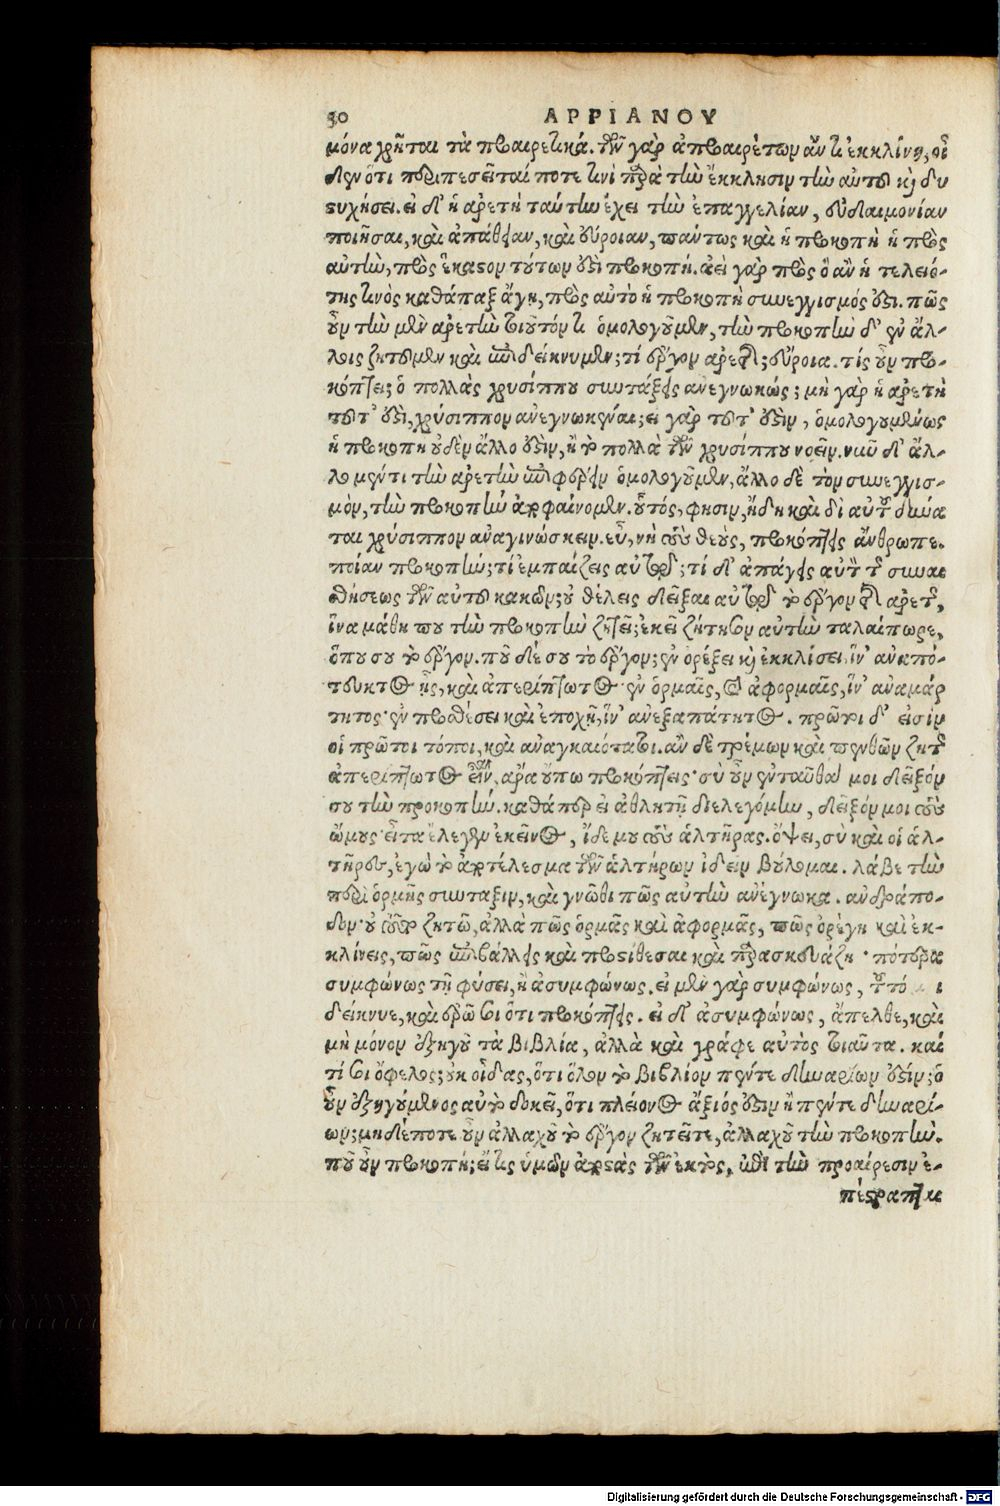 30 ΑΡΡΙΑΝΟΥ
μόνα χρῆται τὰ προαιρετικά. τῶν γὰρ ἀπροαιρέτων ἄν τι ἐκκλίνῃ, οἶ
δεν ὅτι περιπεσεῖταί ποτε τινὶ παρὰ τὴν ἔκκλησιν τὴν αὐτοῦ καὶ δυ
στυχήσει. εἰ δ' ἡ ἀρετὴ ταύτην ἔχει τὴν ἐπαγγελίαν, εὐδαιμονίαν
ποιῆσαι, καὶ ἀπάθειαν, καὶ εὔροιαν, πάντως καὶ ἡ προκοπὴ ἡ πρὸς
αὐτὴν, πρὸς ἕκαστον τούτων ἐστὶ προκοπή. ἀεὶ γὰρ πρὸς ὃ ἂν ἡ τελειό-
της τινὸς καθάπαξ ἄγῃ, πρὸς αὐτὸ ἡ προκοπὴ συνεγγισμός ἐστι. πῶς
οὖν τὴν μὲν ἀρετὴν τοιοῦτόν τι ὁμολογοῦμεν, τὴν προκοπὴν δ' ἐν ἄλ-
λοις ζητοῦμεν καὶ ἐπιδείκνυμεν; τί ἔργον ἀρετῆς; εὔροια. τίς οὖν προ-
κόπτει; ὁ πολλὰς χρυσίππου συντάξεις ἀνεγνωκώς; μὴ γὰρ ἡ ἀρετὴ
τοῦτ' ἐστὶ, χρύσιππον ἀνεγνωκέναι; εἰ γὰρ τοῦτ' ἐστὶν, ὁμολογουμένως
ἡ προκοπὴ οὐδὲν ἄλλο ἐστὶν, ἢ τὸ πολλὰ τῶν χρυσίππου νοεῖν. νῦν δ' ἄλ-
λο μέντι τὴν ἀρετὴν ἐπιφέρειν ὁμολογοῦμεν, ἄλλο δὲ τὸν συνεγγισ-
μὸν, τὴν προκοπὴν ἀποφαίνομεν. οὗτός, φησιν, ἤδη καὶ δι' αὑτοῦ δύνα
ται χρύσιππον ἀναγινώσκειν. εὖ, νὴ τοὺς θεοὺς, προκόπτεις ἄνθρωπε.
ποίαν προκοπὴν; τί ἐμπαίζεις αὐτὸν; τί δ' ἀπάγεις αὐτὸν τῆς συναι
σθήσεως τῶν αὐτοῦ κακῶν; οὐ θέλεις δεῖξαι αὐτῷ τὸ ἔργον τῆς ἀρετῆς,
ἵνα μάθῃ ποῦ τὴν προκοπὴν ζητεῖ; ἐκεῖ ζήτησον αὐτὴν ταλαίπωρε,
ὅπου σου τὸ ἔργον. ποῦ δέ σου τὸ ἔργον; ἐν ὀρέξει καὶ ἐκκλίσει. ἵν' ἀναπό-
τευκτος ᾖς, καὶ ἀπερίπτωτος· ἐν ὁρμαῖς, καὶ ἀφορμαῖς, ἵν' ἀναμάρ
τητος· ἐν προσθέσει καὶ ἐποχῇ, ἵν' ἀνεξαπάτητος. πρῶτοι δ' εἰσὶν
οἱ πρῶτοι τόποι, καὶ ἀναγκαιότατοι. ἂν δὲ τρέμων καὶ πενθῶν ζητῇς
ἀπερίπτωτος εἶναι, ἄρα οὔπω προκόπτεις· σὺ οὖν ἐνταῦθά μοι δεῖξόν
σου τὴν προκοπήν. καθάπερ εἰ ἀθλητῇ διελεγόμην, δεῖξόν μοι τοὺς
ὤμους· εἶτα ἔλεγεν ἐκεῖνος, ἴδε μου τοὺς ἁλτῆρας. ὄψει, σὺ καὶ οἱ ἁλ-
τῆρες, ἐγὼ τὸ ἀποτέλεσμα τῶν ἁλτήρων ἰδεῖν βούλομαι. λάβε τὴν
περὶ ὁρμῆς σύνταξιν, καὶ γνῶθι πῶς αὐτὴν ἀνέγνωκα. ἀνδράπο-
δον· οὐ τοῦτο ζητῶ, ἀλλὰ πῶς ὁρμᾷς καὶ ἀφορμᾷς, πῶς ὀρέγῃ καὶ ἐκ-
κλίνεις, πῶς ἐπιβάλλεις καὶ προστίθεσαι καὶ παρασκευάζῃ· πότερα
συμφώνως τῇ φύσει, ἢ ἀσυμφώνως. εἰ μὲν γὰρ συμφώνως,
δείκνυε, καὶ ἐρῶ σοι ὅτι προκόπτεις. εἰ δ' ἀσυμφώνως, ἄπελθε, καὶ
μὴ μόνον ἐξηγοῦ τὰ βιβλία, ἀλλὰ καὶ γράφε αὐτὸς τοιαῦτα. καὶ
τί σοι ὄφελος; οὐκ οἶδας, ὅτι ὅλον τὸ βιβλίον πέντε δηναρίων ἐστίν; ὁ
οὖν ἐξηγούμενος αὐτὸ δοκεῖ, ὅτι πλείονος ἄξιός ἐστιν ἢ πέντε δηναρί-
ων; μηδέποτε οὖν ἀλλαχοῦ τὸ ἔργον ζητεῖτε, ἀλλαχοῦ τὴν προκοπήν.
ποῦ οὖν προκοπή; εἴ τις ὑμῶν ἀποστὰς τῶν ἐκτὸς, ἐπὶ τὴν προαίρεσιν ἐ-
πέστραπται
Digitalisierung gefördert durch die Deutsche Forschungsgemeinschaft - DFG